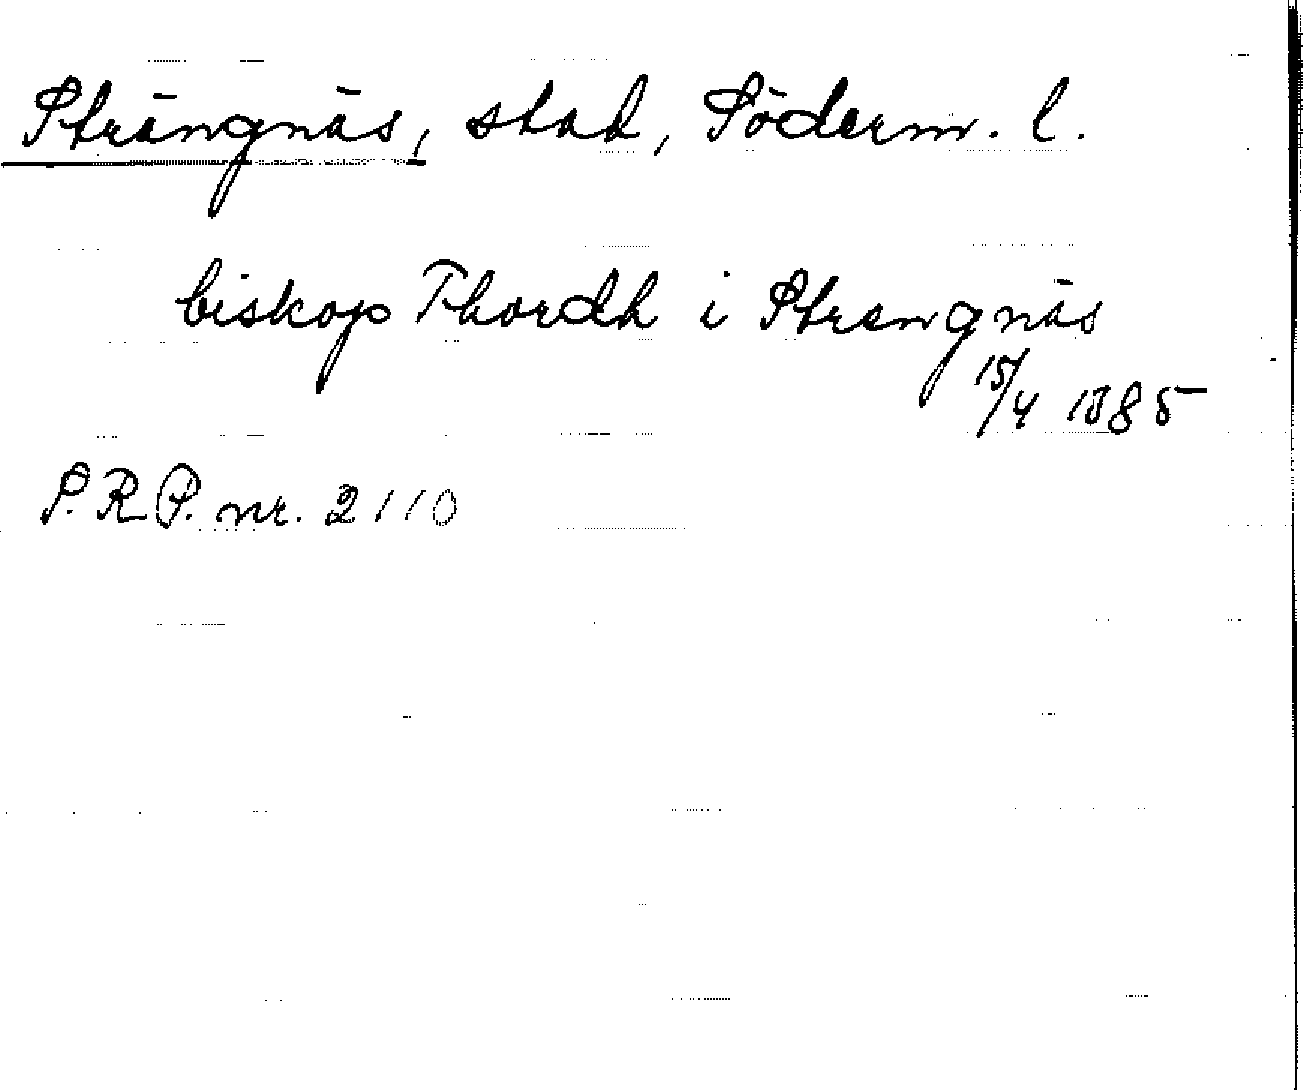 Strängnäs, stad, Söderm. l.
biskop Thordh i Strengnäs
15/4 1385
S.R.P. nr. 2110